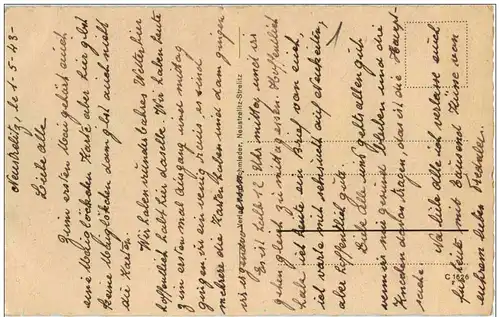 Neustrelitz, d. 1-5-43-
Liebe alle.
Zum ersten Mai gehört auch
eine Maiglöckchen Karte aber hier gibt
keine Maiglöckchen dann gibt auch nicht
die Karten.
Wir haben wunderbares Wetter hier
hoffentlich habt ihr dasselbe. Wir haben heute
zum ersten mal Ausgang und mittag
gingen wir ein wenig raus, es sind
mehrere die Karten haben und dann gingen
wir irgendwo essen.
Es ist halb 12 Uhr mittag und wir
gehen gleich zu mittag essen. Hoffentlich
habe ich heute ein Brief von euch,
ich warte mit sehnsucht auf Neuigkeiten,
aber hoffentlich gute.
Liebe Alle uns geht allen gut
wenn wir nur gesund bleiben und die
Knochen davon tragen, das ist die Haupt-
sache.
Na liebe alle ich verlasse euch
für heute mit tausend Küsse von
eurem lieben
Verlag Schmieder, Neustrelitz-Strelitz
C 1626